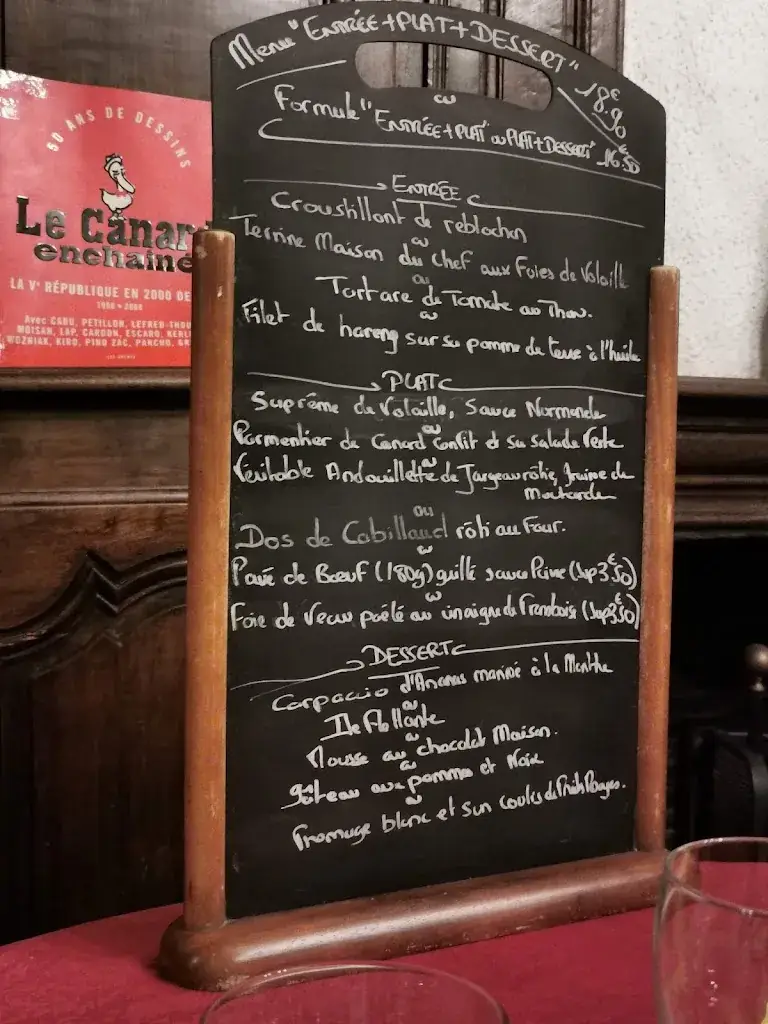 50 ANS DE DESSINS
Le Canar
enchainé
LA Vᵉ RÉPUBLIQUE EN 2000 DE
Avec CABU, PETILLON, LEFRED-THOU
MOISAN, LAP, CARDON, ESCARO, KERL
WOZNIAK, KIRO, PINO ZAC, PANCHO, GR
Menu "ENTRÉE+PLAT+DESSERT" 18€90
ou
Formule "ENTRÉE+PLAT" ou PLAT+DESSERT" 16€50
ENTRÉE
Croustillant de reblochon
ou
Terrine Maison du Chef aux Foies de Volaille
ou
Tartare de Tomate au Thon.
ou
Filet de hareng sur sa pomme de terre à l'huile
PLAT
Suprême de Volaille, Sauce Normande
ou
Parmentier de Canard Confit et sa salade Verte
ou
Véritable Andouillette de Jargeau rôtie, graine de
Moutarde
ou
Dos de Cabillaud rôti au Four.
ou
Pavé de Bœuf (180g) grillé sauce Poivre (sup 3€50)
ou
Foie de Veau poêlé au vinaigre de Framboise (sup 3€50)
DESSERT
Carpaccio d'Ananas mariné à la Menthe
ou
Ile Flottante
ou
Mousse au chocolat Maison.
ou
gâteau aux pomme et Noix
ou
Fromage blanc et son coulis de Fruits Rouges.